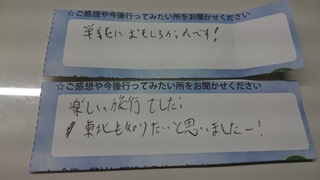 ☆ご感想や今後行ってみたい所をお聞かせください
単純におもしろかったです!
☆ご感想や今後行ってみたい所をお聞かせください
楽しい旅行でした!
東北も知りたいと思いましたー!